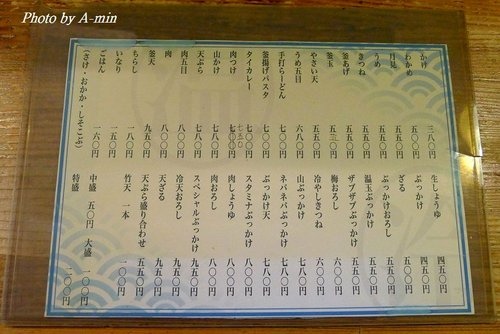 Photo by A-min
かけ 三八〇円
わかめ 五〇〇円
月見 五五〇円
うめ 五五〇円
きつね 五五〇円
釜あげ 五五〇円
釜玉 五三〇円
やさい天 五五〇円
うめ五目 六八〇円
手打らーどん 七〇〇円
釜揚げパスタ 七八〇円
タイカレー 七五〇
肉つけ 七八〇円
山かけ 七八〇円
天ぷら 七八〇円
肉五目 八〇〇円
肉 八〇〇円
釜天 九五〇円
ちらし 一八〇円
いなり 一五〇円
ごはん 一六〇円
(さけ・おかか・しそこんぶ)
生しょうゆ 四五〇円
ぶっかけ 四五〇円
ざる 五〇〇円
ぶっかけおろし 五五〇円
温玉ぶっかけ 五五〇円
ザブザブぶっかけ 五五〇円
梅おろし 六〇〇円
冷やしきつね 六〇〇円
山ぶっかけ 七八〇円
ネバネバぶっかけ 七八〇円
ぶっかけ天 七八〇円
スタミナぶっかけ 八〇〇円
肉しょうゆ 八〇〇円
肉おろし 八〇〇円
スペシャルぶっかけ 九五〇円
冷天おろし 九五〇円
天ざる 九五〇円
天ぷら盛り合わせ 五五〇円
竹天 一本 一〇〇円
中盛 五〇円 大盛 一〇〇円
特盛 二〇〇円